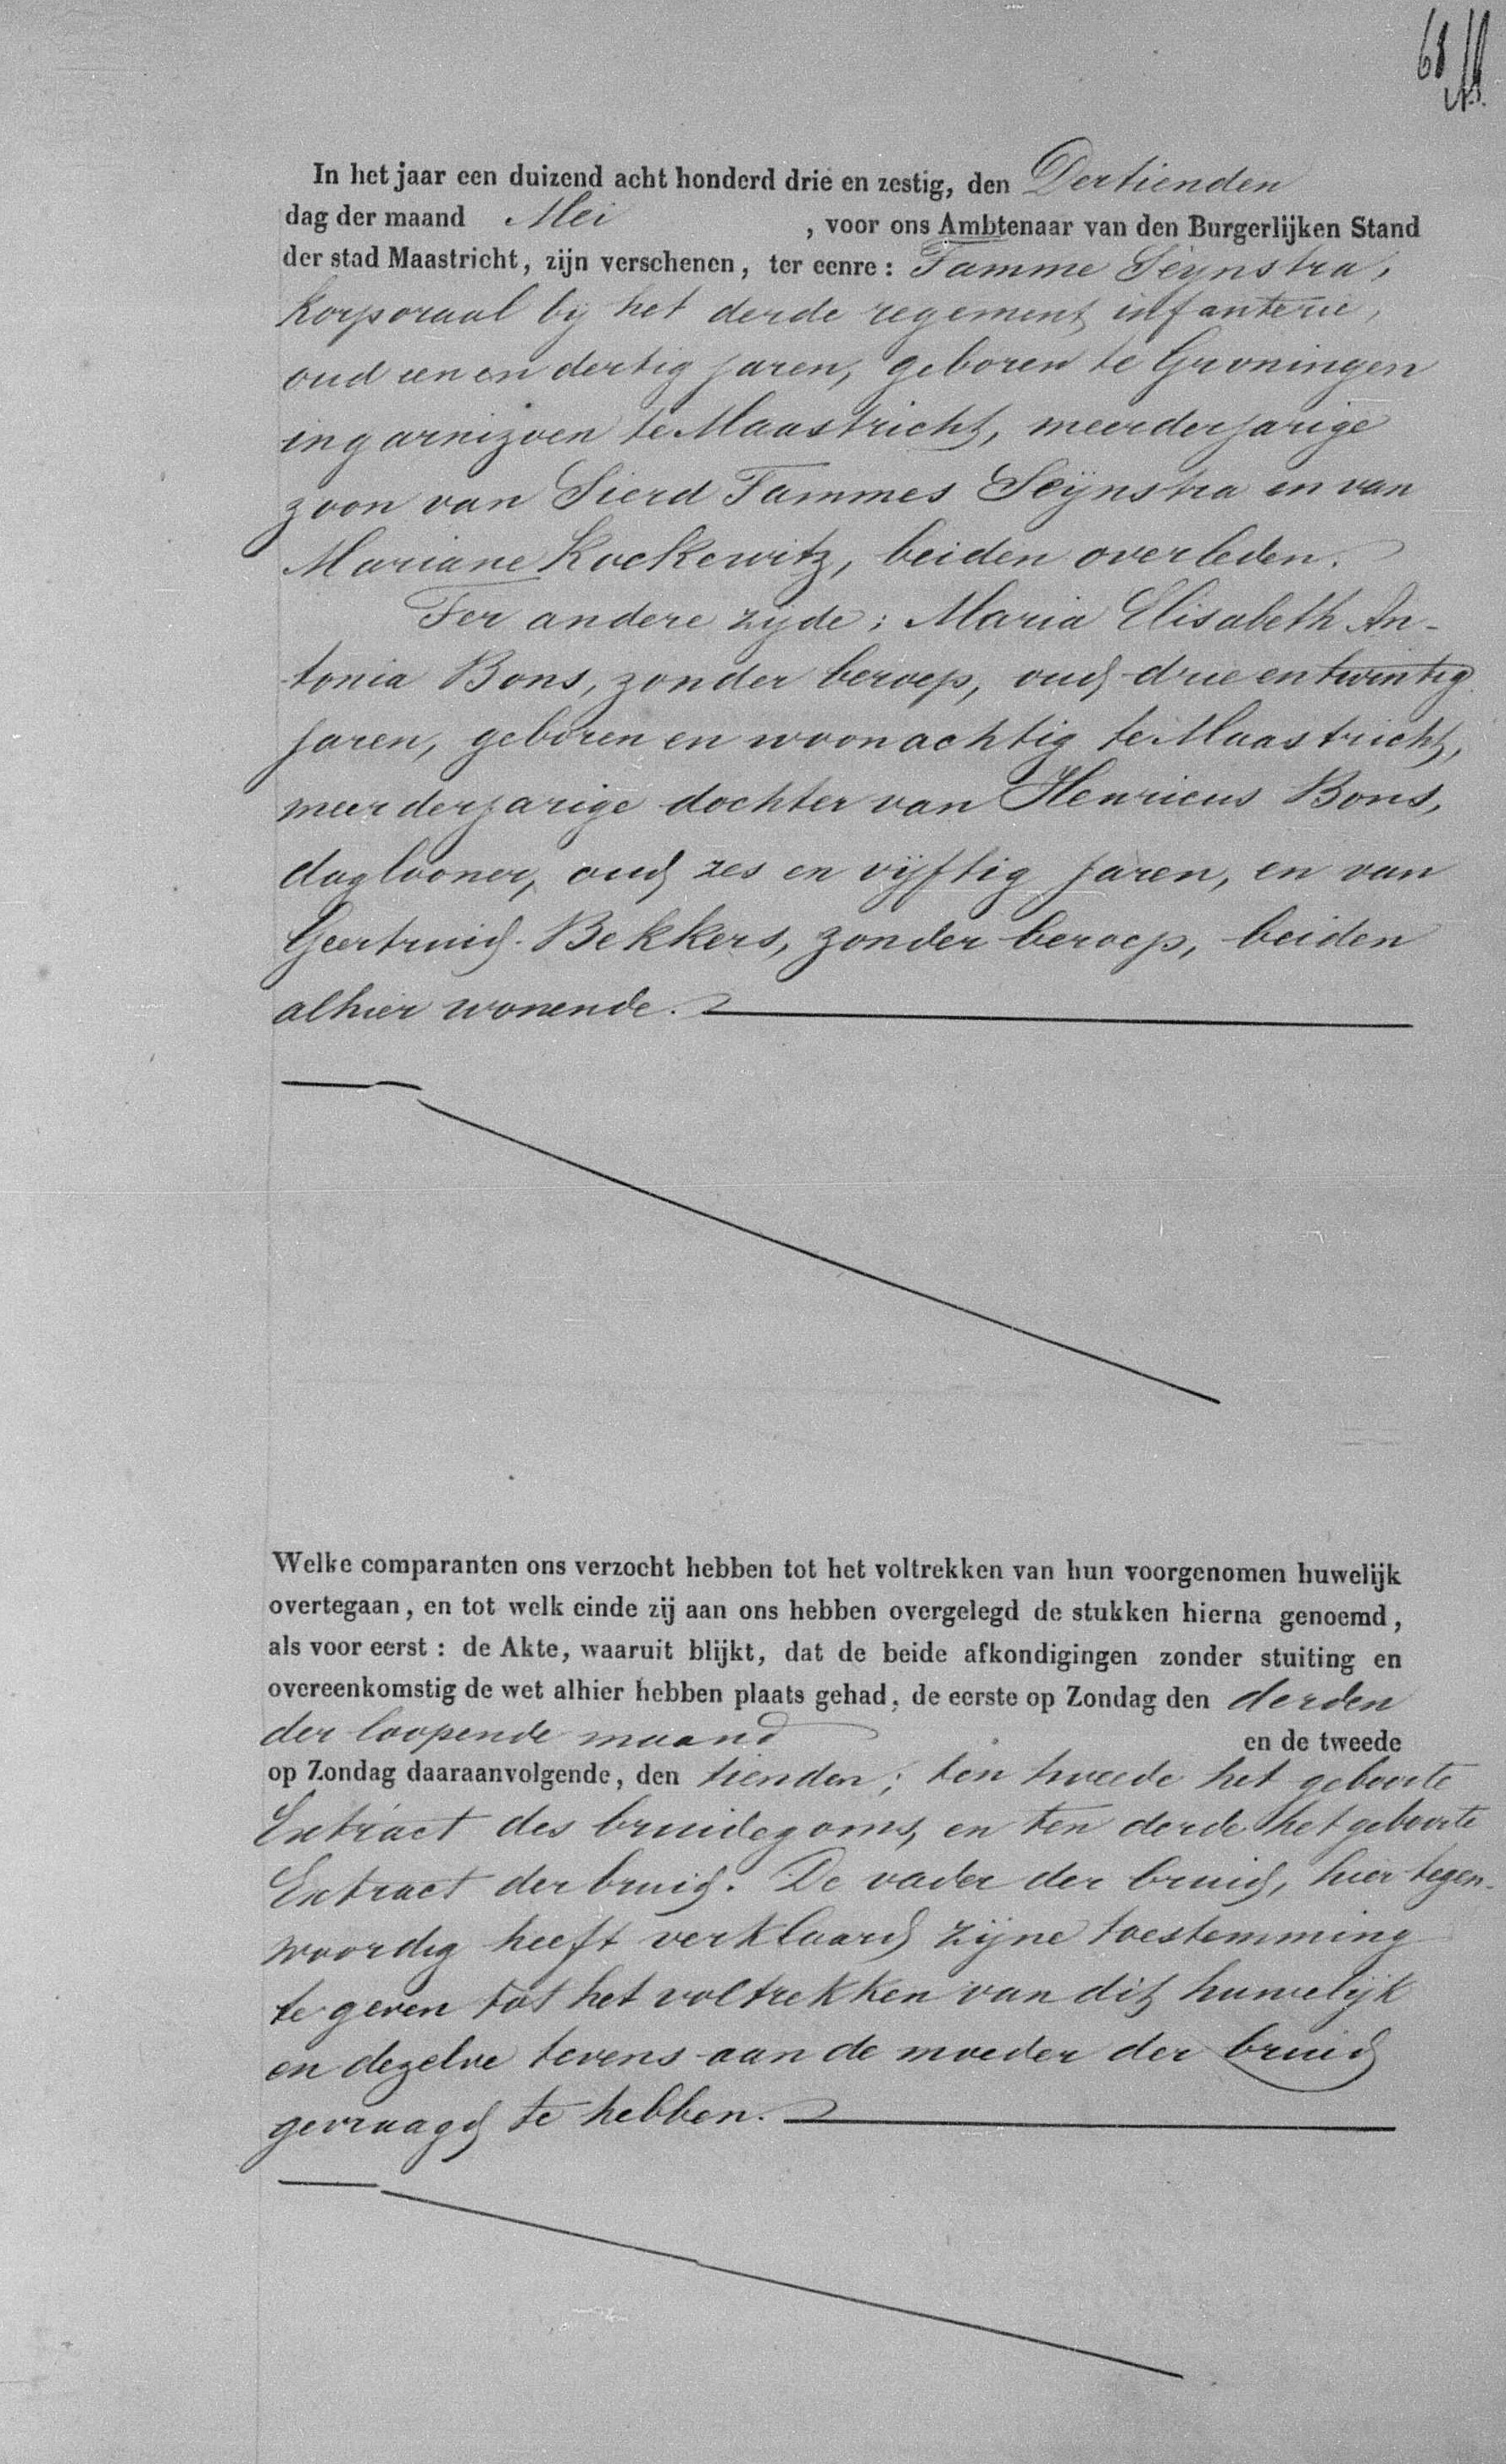 68
In het jaar een duizend acht honderd drie en zestig, den Dertienden
dag der maand Mei , voor ons Ambtenaar van den Burgerlijken Stand
der stad Maastricht, zijn verschenen, ter eenre: Tamme Seijnstra,
korporaal bij het derde regement infanterie,
oud een en dertig jaren, geboren te Groningen
in garnizoen te Maastricht, meerderjarige
zoon van Sierd Tammes Seijnstra en van
Mariane Kockewitz, beiden overleden.
Ter andere zijde; Maria Elisabeth An-
tonia Bons, zonder beroep, oud drie en twintig
jaren, geboren en woonachtig te Maastricht,
meerderjarige dochter van Henricus Bons,
daglooner, oud zes en vijftig jaren, en van
Geertruid Bekkers, zonder beroep, beiden
alhier wonende.
Welke comparanten ons verzocht hebben tot het voltrekken van hun voorgenomen huwelijk
overtegaan, en tot welk einde zij aan ons hebben overgelegd de stukken hierna genoemd,
als voor eerst: de Akte, waaruit blijkt, dat de beide afkondigingen zonder stuiting en
overeenkomstig de wet alhier hebben plaats gehad, de eerste op Zondag den derden
der loopende maand en de tweede
op Zondag daaraanvolgende, den tienden; ten tweede het geboorte
Extract des bruidegoms, en ten derde het geboorte
Extract der bruid. De vader der bruid, hier tegen-
woordig heeft verklaard zijne toestemming
te geven tot het voltrekken van dit huwelijk
en dezelve tevens aan de moeder der bruid
gevraagd te hebben.